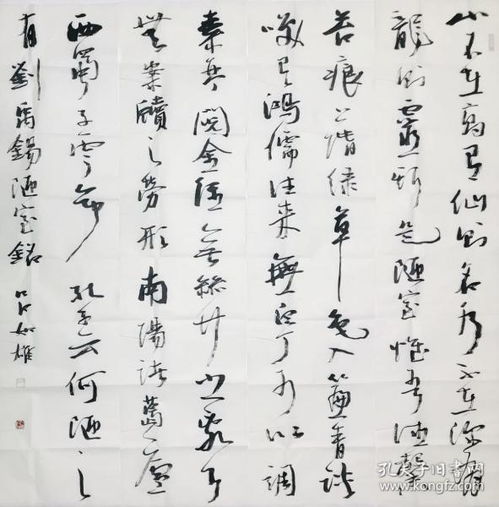 山不在高有仙则名水不在深有
龍则靈斯是陋室惟吾德馨
苔痕上階绿草色入簾青谈
笑有鴻儒往来無白丁可以調
素琴阅金经無絲竹之亂耳
無案牘之勞形南陽諸葛廬
西蜀子雲亭孔子云何陋之
有劉禹錫陋室銘 如雄
孔夫子旧书网
www.kongfz.com